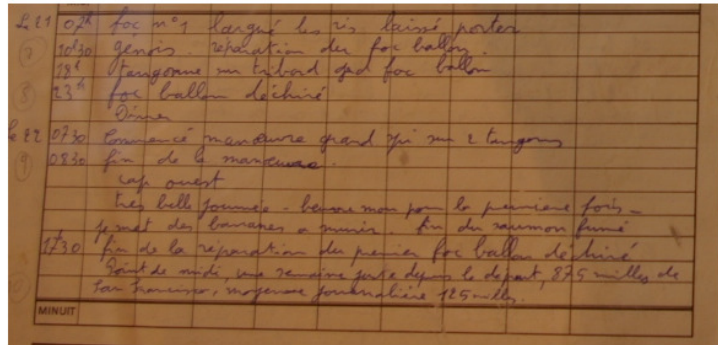 Le 21 07h foc n°1 largué les ris laissé porter
7 10h30 génois. réparation du foc ballon.
18h tangonne sur tribord gd foc ballon
8 23h foc ballon déchiré
Dîner
Le 22 0730 Commencé manœuvre grand spi sur 2 tangons
9 0830 fin de la manœuvre.
cap ouest
très belle journée - pour la première fois -
je met des bananes a murir. fin du saumon fumé
17h30 fin de la réparation du premier foc ballon déchiré
Point de midi, une semaine juste depuis le départ, 875 milles de
San Francisco, moyenne journalière 125 milles.
MINUIT